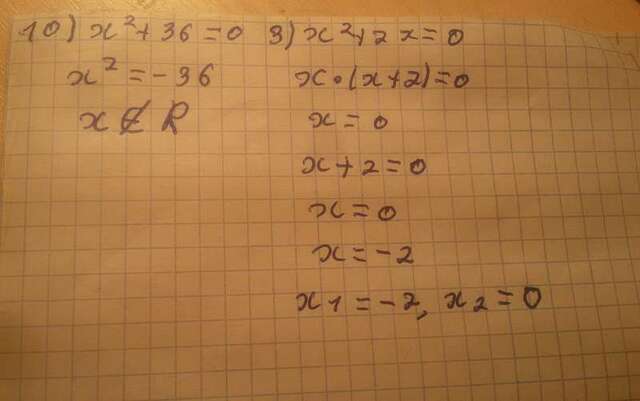 10) x² + 36 = 0
x² = -36
x ∉ R
9) x² + 2x = 0
x • (x + 2) = 0
x = 0
x + 2 = 0
x = 0
x = -2
x1 = -2, x2 = 0